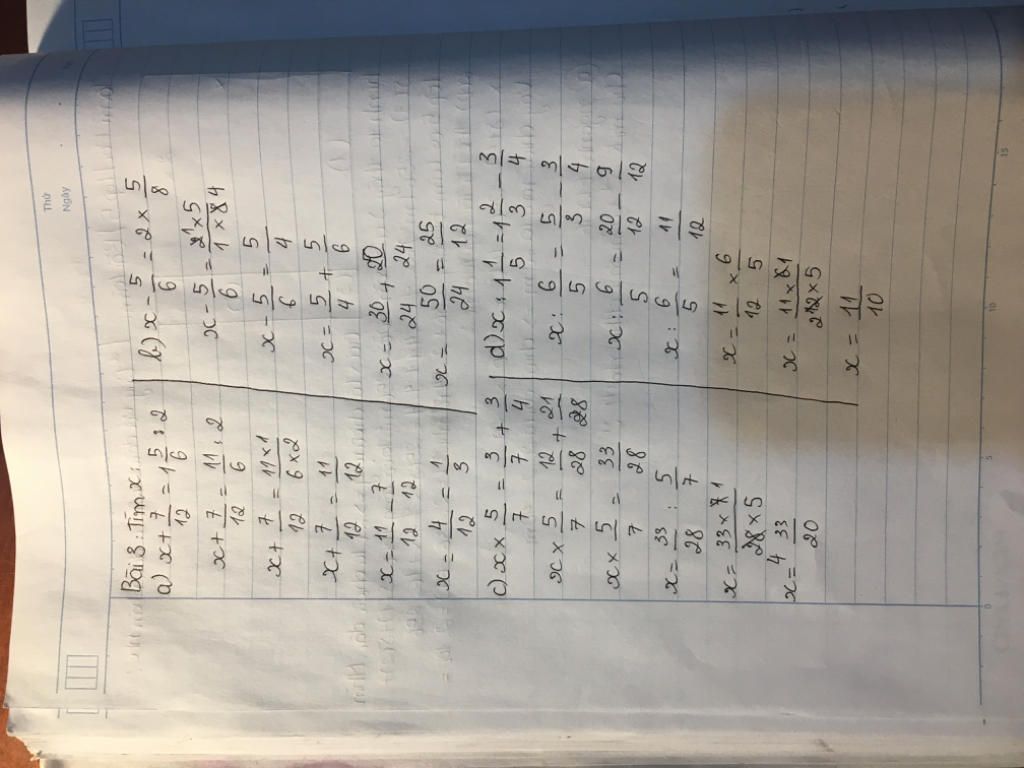 Thứ
Ngày
Bài 3: Tìm x:
a) x + 7/12 = 1 5/6 : 2
x + 7/12 = 11/6 : 2
x + 7/12 = 11 × 1/6 × 2
x + 7/12 = 11/12
x = 11/12 - 7/12
x = 4/12 = 1/3
b) x - 5/6 = 2 × 5/8
x - 5/6 = 2 1 × 5/1 × 8 4
x - 5/6 = 5/4
x = 5/4 + 5/6
x = 30/24 + 20/24
x = 50/24 = 25/12
c) x × 5/7 = 3/7 + 3/4
x × 5/7 = 12/28 + 21/28
x × 5/7 = 33/28
x = 33/28 : 5/7
x = 33 × 7 1/28 × 5
4
x = 33/20
d) x : 1 1/5 = 1 2/3 - 3/4
x : 6/5 = 5/3 - 3/4
x : 6/5 = 20/12 - 9/12
x : 6/5 = 11/12
x = 11/12 × 6/5
x = 11 × 6 1/2 12 × 5
x = 11/10
0
5
10
15